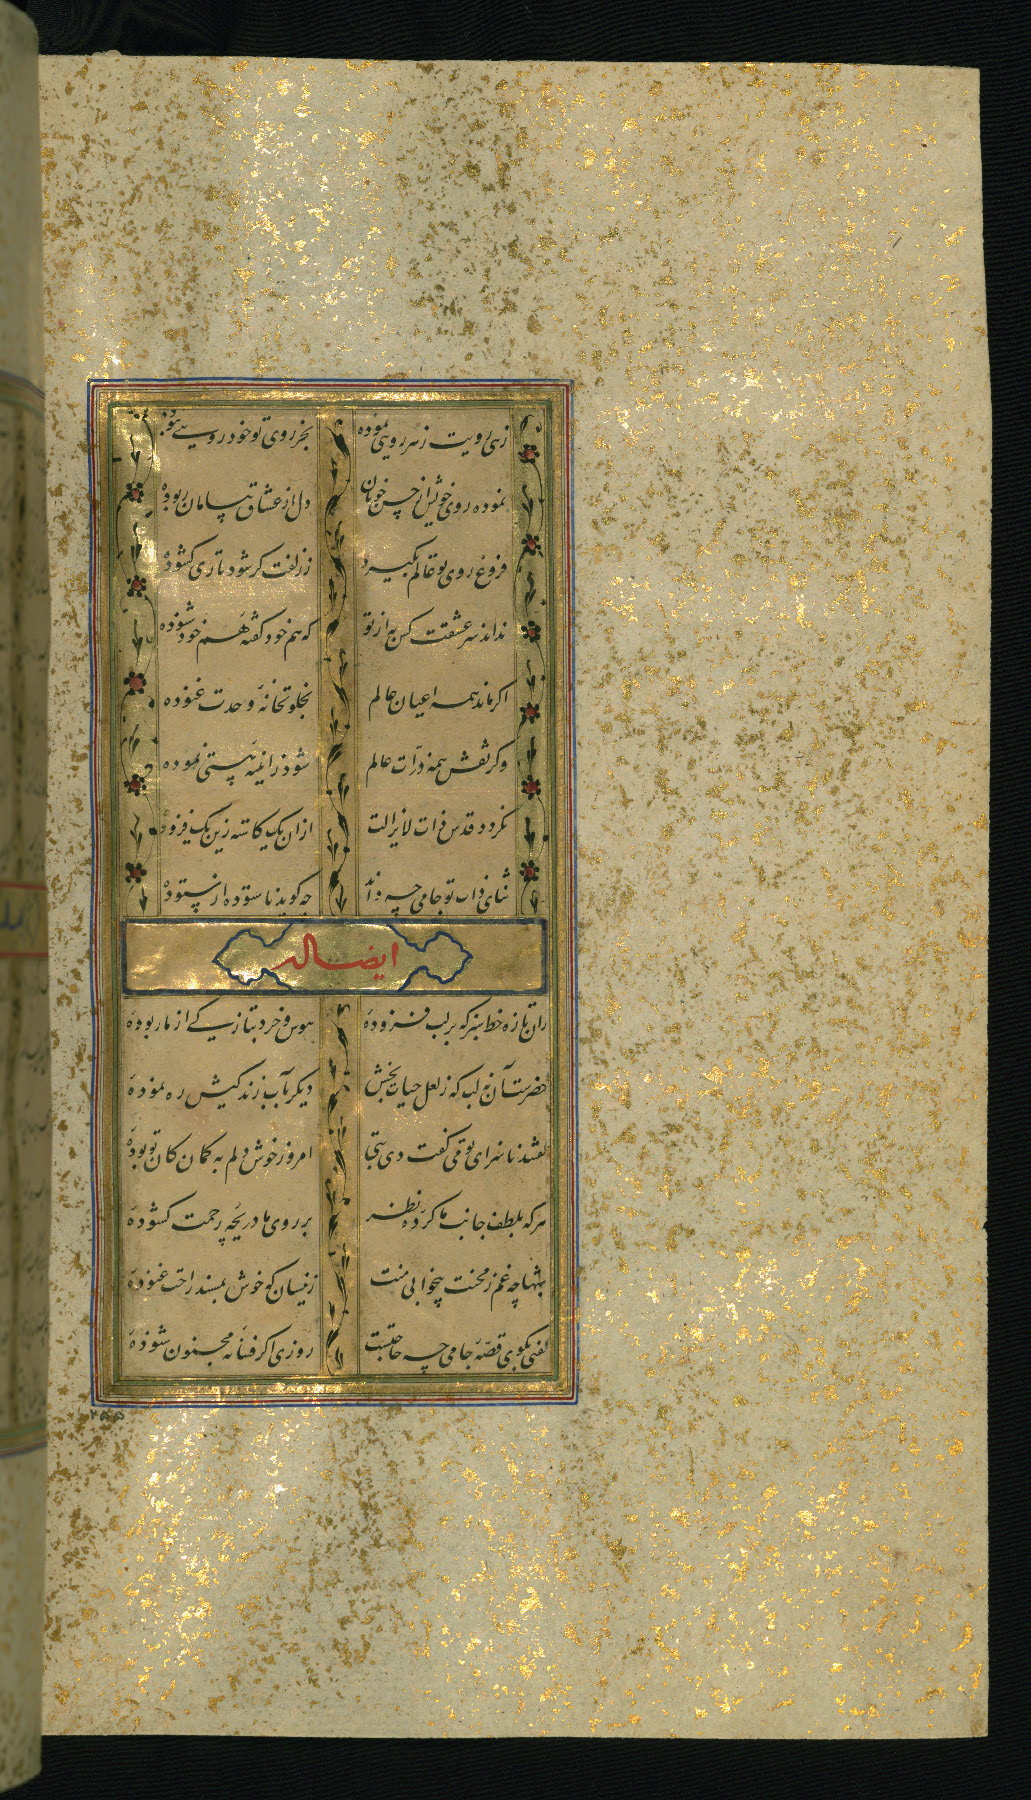 زهی رویت ز هر رویی نموده بجز روی تو خود رویی نبوده
نموده روی خویش از چهره خوبان دل از عشاق بی سامان ربوده
فروغ روی تو عالم بگیرد ز زلفت گر شود تاری گشوده
نداند سر عشقت کس به از تو که هم خود گفته هم خود شنوده
اگر ماند همه اعیان عالم بخلوتخانه وحدت غنوده
وگر نقش همه ذرات عالم شود ز آیینه هستی نموده
نگردد قدس ذات لایزالت از آن یک کاسته زین یک فزوده
ثنای ذات تو جامی چه داند چه گوید ناستوده از ستوده
ایضا له
زان تازه خط سبز که بر لب فزوده هوش و خرد بتازگی از ما ربوده
خضرست آن نه لب که ز لعل حیات بخش دیگر بآب زندگیش ره نموده
گفتند ناسزای تو می گفت دی بتی امروز خوش دلم به گمان کان تو بوده
هر گه بلطف جانب ما کرده نظر بر روی ما دریچه رحمت گشوده
شبها چه غم ز محنت بیخوابی منت زینسان که خوش بمسند راحت غنوده
گفتی بگوی قصه جامی چه حاجتست روزی اگر فسانه مجنون شنوده
۲۵۵